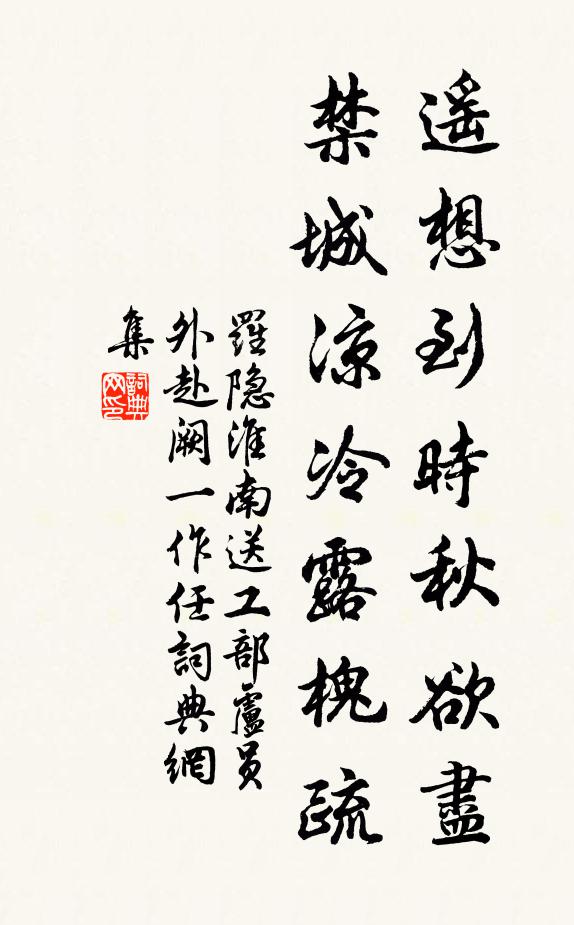 遥想到時秋欲盡
禁城凉冷露槐疏
羅隐淮南送工部盧員
外赴阙一作任詞典網
集
詞典網印